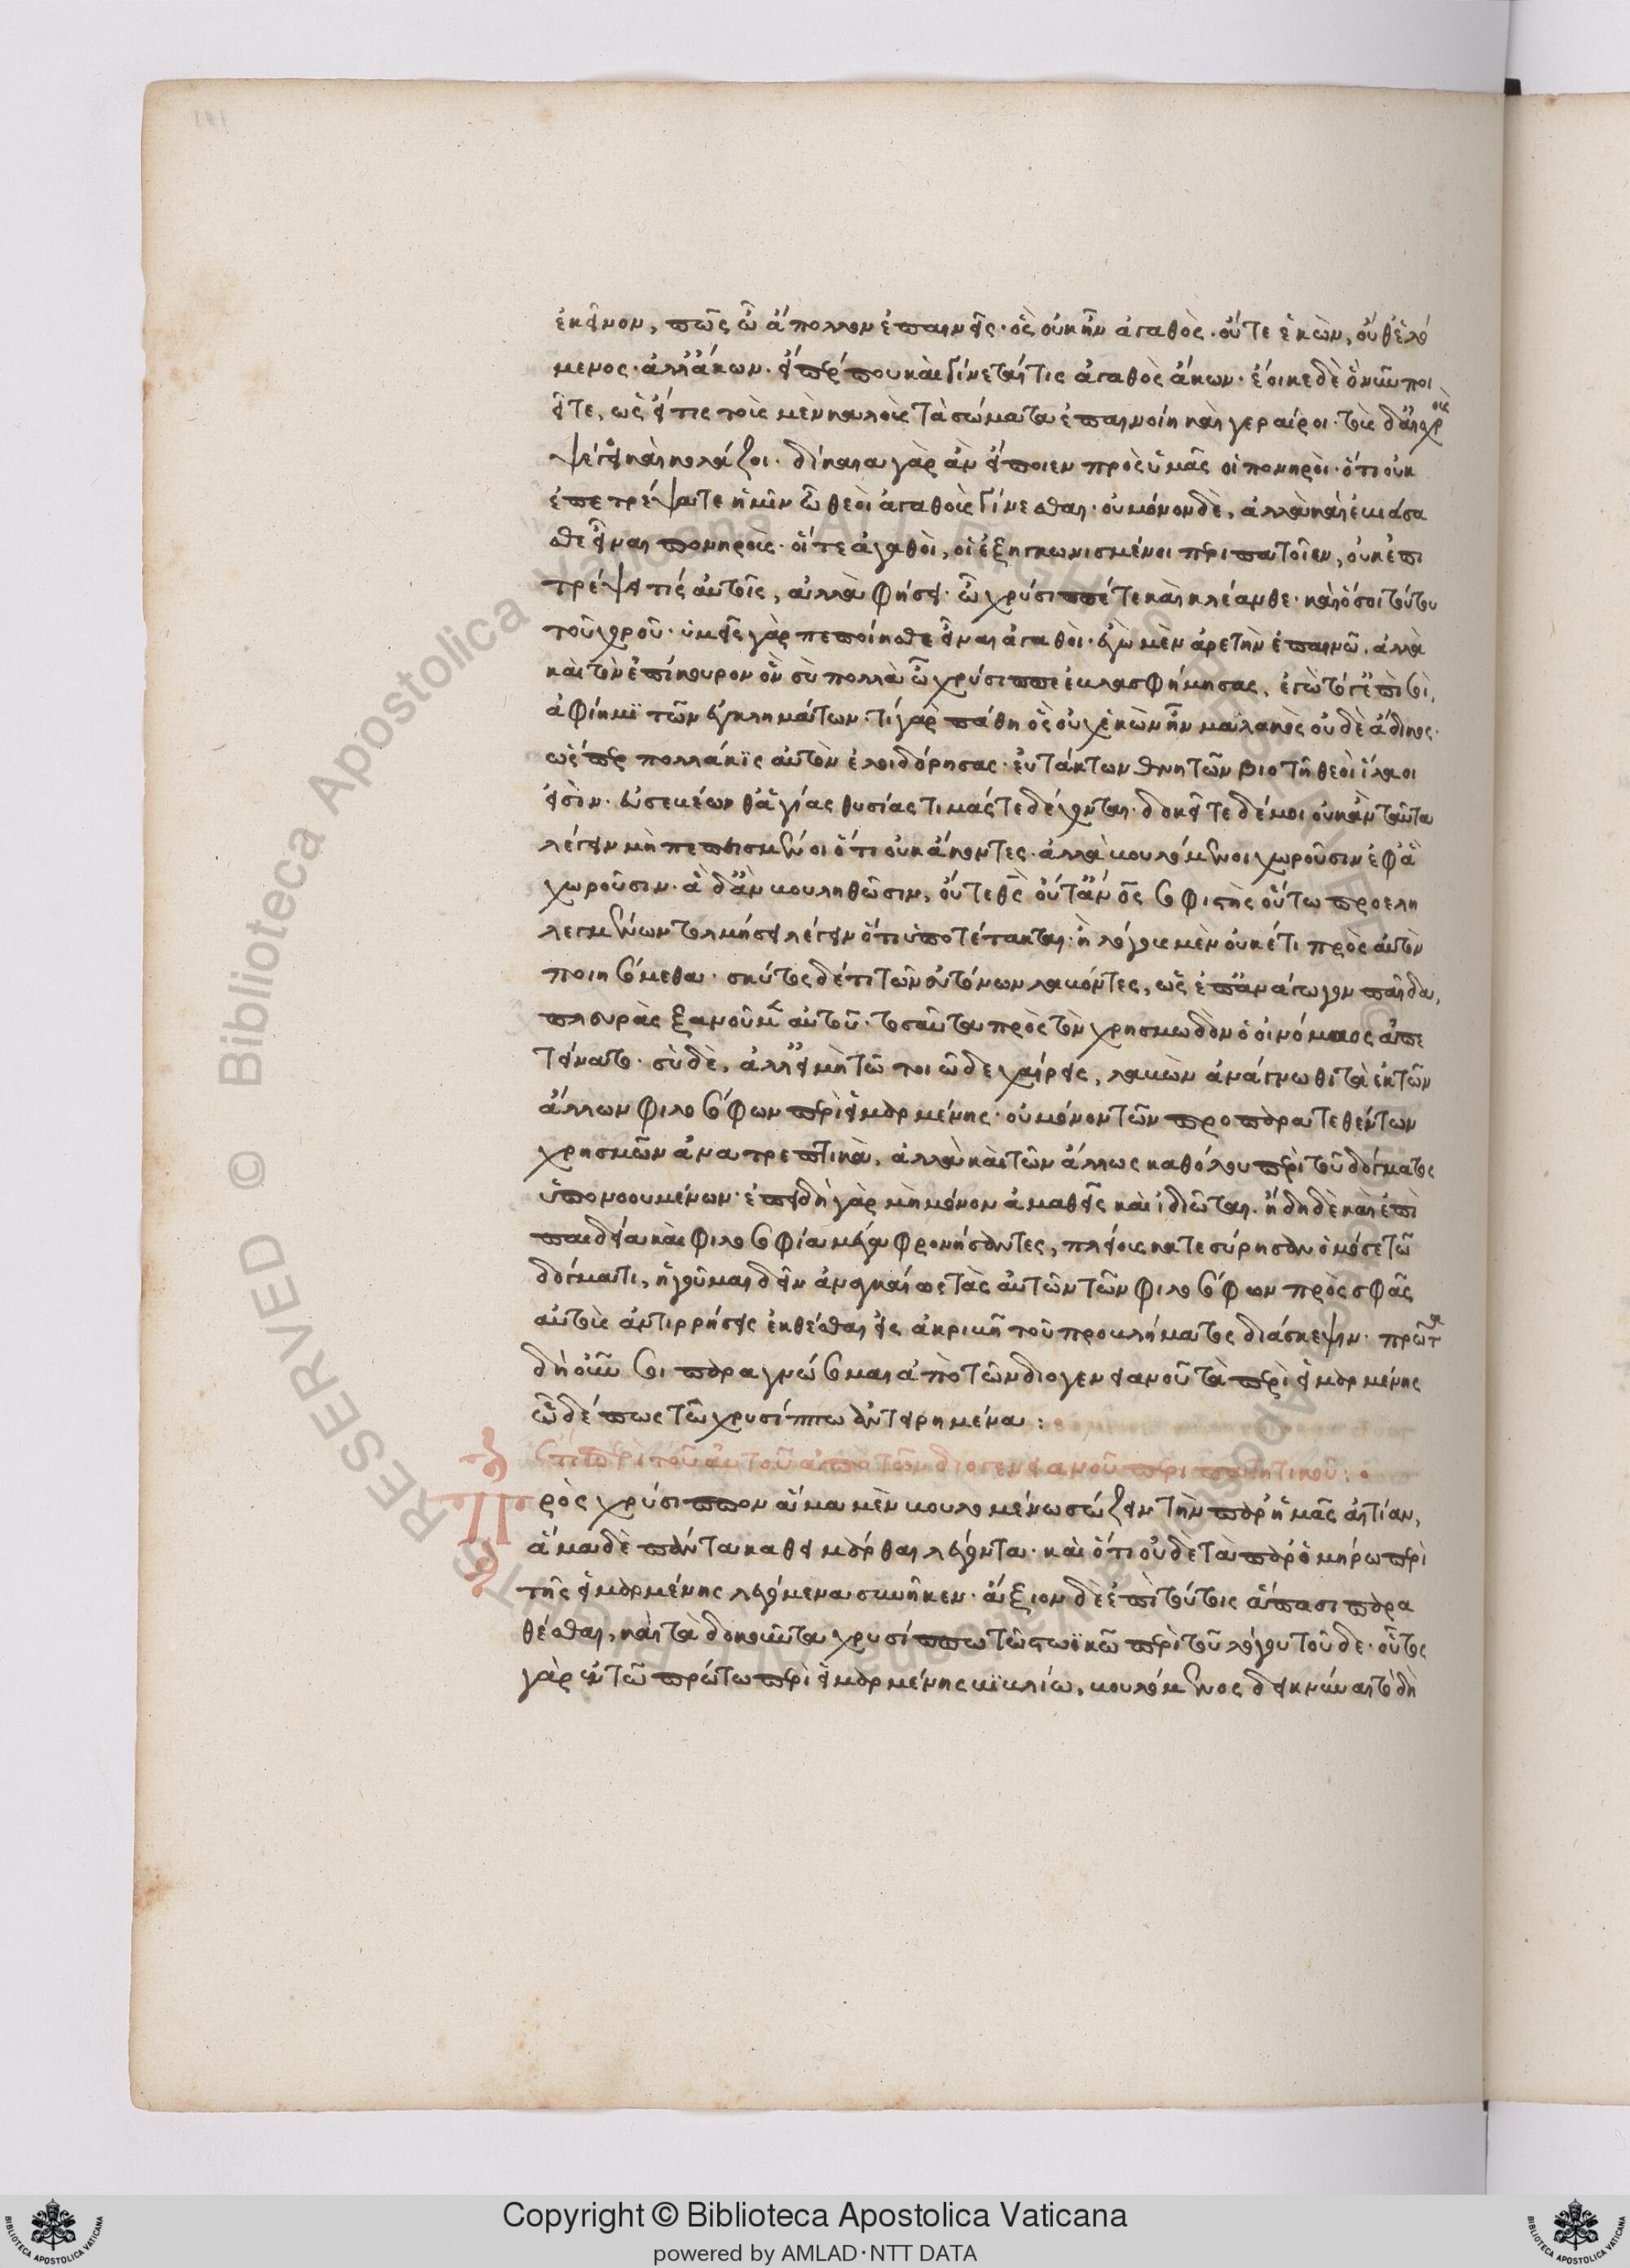 ἐκεῖνον, πῶς ὦ ἄπολλον ἐπαινεῖς· ὃς οὐκ ἦν ἀγαθὸς· οὔτε ἑκὼν, οὐ θελό
μενος· ἀλλ' ἄκων· εἴπερ που καὶ γίνεταί τις ἀγαθὸς ἄκων· ἔοικε δὲ ὃ νῦν ποι
εῖτε, ὡς εἴ τις τοῖς μὲν καλοῖς τὰ σώματα ἐπαινοίη καὶ γεραίροι· τοῖς δ' αἰσχροῖς
ψέγει καὶ κολάζοι· δίκαια γὰρ ἂν εἴποιεν πρὸς ὑμᾶς οἱ πονηροὶ· ὅτι οὐκ
ἐπετρέψατε ἡμῖν ὦ θεοὶ ἀγαθοῖς γίνεσθαι· οὐ μόνον δὲ, ἀλλὰ καὶ ἐβιάσα
σθε εἶναι πονηροῖς· οἵ τε ἀγαθοὶ, οἱ ἐξηγκωνισμένοι περιπατοῖεν, οὐκ ἐπι
τρέψει τίς αὐτοῖς, ἀλλὰ φήσει· ὦ χρύσιππέ τε καὶ κλέανθε· καὶ ὅσοι τούτου
τοῦ χοροῦ· ὑμεῖς γὰρ πεποίησθε εἶναι ἀγαθοὶ· ἐγὼ μὲν ἀρετὴν ἐπαινῶ, ἀλλὰ
καὶ τὸν ἐπίκουρον ὃν σὺ πολλὰ ὦ χρύσιππε ἐβλασφήμησας,
ἀφίημϊ τῶν ἐγκλημάτων· τί γὰρ πάθη ὃς οὐχ ἑκὼν ἦν μαλακὸς οὐδὲ ἄδικος·
ὡς πολλάκϊς αὐτὸν ἐλοιδόρησας· εὐτάκτων θνητῶν βιοτῆ θεοὶ ἵλαοι
εἰσὶν· εὐσεβέων θ' ἁγίας θυσίας τιμάς τε δέχονται· δοκεῖτε δέ μοι οὐκ ἂν ταῦτα
λέγειν μὴ πεπεισμένοι ὅτι οὐκ ἄκοντες· ἀλλὰ βουλόμενοι χωροῦσιν ἐφ' ἃ
χωροῦσιν· ἃ δ' ἂν βουληθῶσιν, οὔτε θεὸς οὔτ' ἀνὸς σοφιστὴς οὕτω προεπη
λεγμένων τολμήσει λέγειν ὅτι ὑποτέτακται· ἢ λόγω μὲν οὐκέτι πρὸς αὐτὸν
ποιησόμεθα· σκύτος δέ τι τῶν εὐτόνων λαβόντες, ὡς ἐπ' ἀνάγωγον παῖδα,
πλευρὰς ξανοῦμεν αὐτοῦ· τοσαῦτα πρὸς τὸν χρησμωδὸν ὁ οἰνόμαος ἀπε
τείνατο· σὺ δὲ, ἀλλ' εἰ μὴ τῶ τοιῶδε χαίρεις, λαβὼν ἀνάγνωθι τὰ ἐκ τῶν
ἄλλων φιλοσόφων περὶ εἱμαρμένης· οὐ μόνον τῶν προπαρατεθέντων
χρησμῶν ἀνατρεπτικὰ, ἀλλὰ καὶ τῶν ἄλλως καθόλου περὶ τοῦ δόγματος
ὑπονοουμένων· ἐπειδὴ γὰρ μὴ μόνον ἀμαθεῖς καὶ ἰδιῶται. ἤδη δὲ καὶ ἐπὶ
παιδεία καὶ φιλοσοφία μέγα φρονήσαντες, πλείους κατεσύρησαν ὁμόσε τῶ
δόγματι, ἡγοῦμαι δεῖν ἀναγκαίως τὰς αὐτῶν τῶν φιλοσόφων πρὸς σφᾶς
αὐτοὺς ἀντιρρήσεις ἐκθέσθαι εἰς ἀκριβῆ τοῦ προβλήματος διάσκεψιν· πρῶτα
δὴ οὖν σοι παραγνώσομαι ἀπὸ τῶν διογενειανοῦ τὰ περὶ εἱμαρμένης
ὧδέ πως τῶ χρυσίππω ἀντειρημένα:
ἔτι περὶ τοῦ αὐτοῦ ἀπὸ τῶν διογενειανοῦ περιπατητικοῦ:
Πρὸς χρύσιππον ἅμα μὲν βουλομένω σώζειν τὴν παρ' ἡμᾶς αἰτίαν,
ἅμα δὲ πάντα καθειμάρθαι λέγοντα· καὶ ὅτι οὐδὲ τὰ παρ' ὁμήρω περὶ
τῆς εἱμαρμένης λεγόμενα συνῆκεν· ἄξιον δὲ ἐπὶ τούτοις ἅπασι παρα
θέσθαι, καὶ τὰ δοκοῦντα χρυσίππω τῶ στωϊκῶ περὶ τοῦ λόγου τοῦδε· οὗτος
γὰρ ἐν τῶ πρώτω περὶ εἱμαρμένης βϊβλίω, βουλόμενος δεικνύναι τὸ δὴ
Copyright © Biblioteca Apostolica Vaticana
powered by AMLAD·NTT DATA